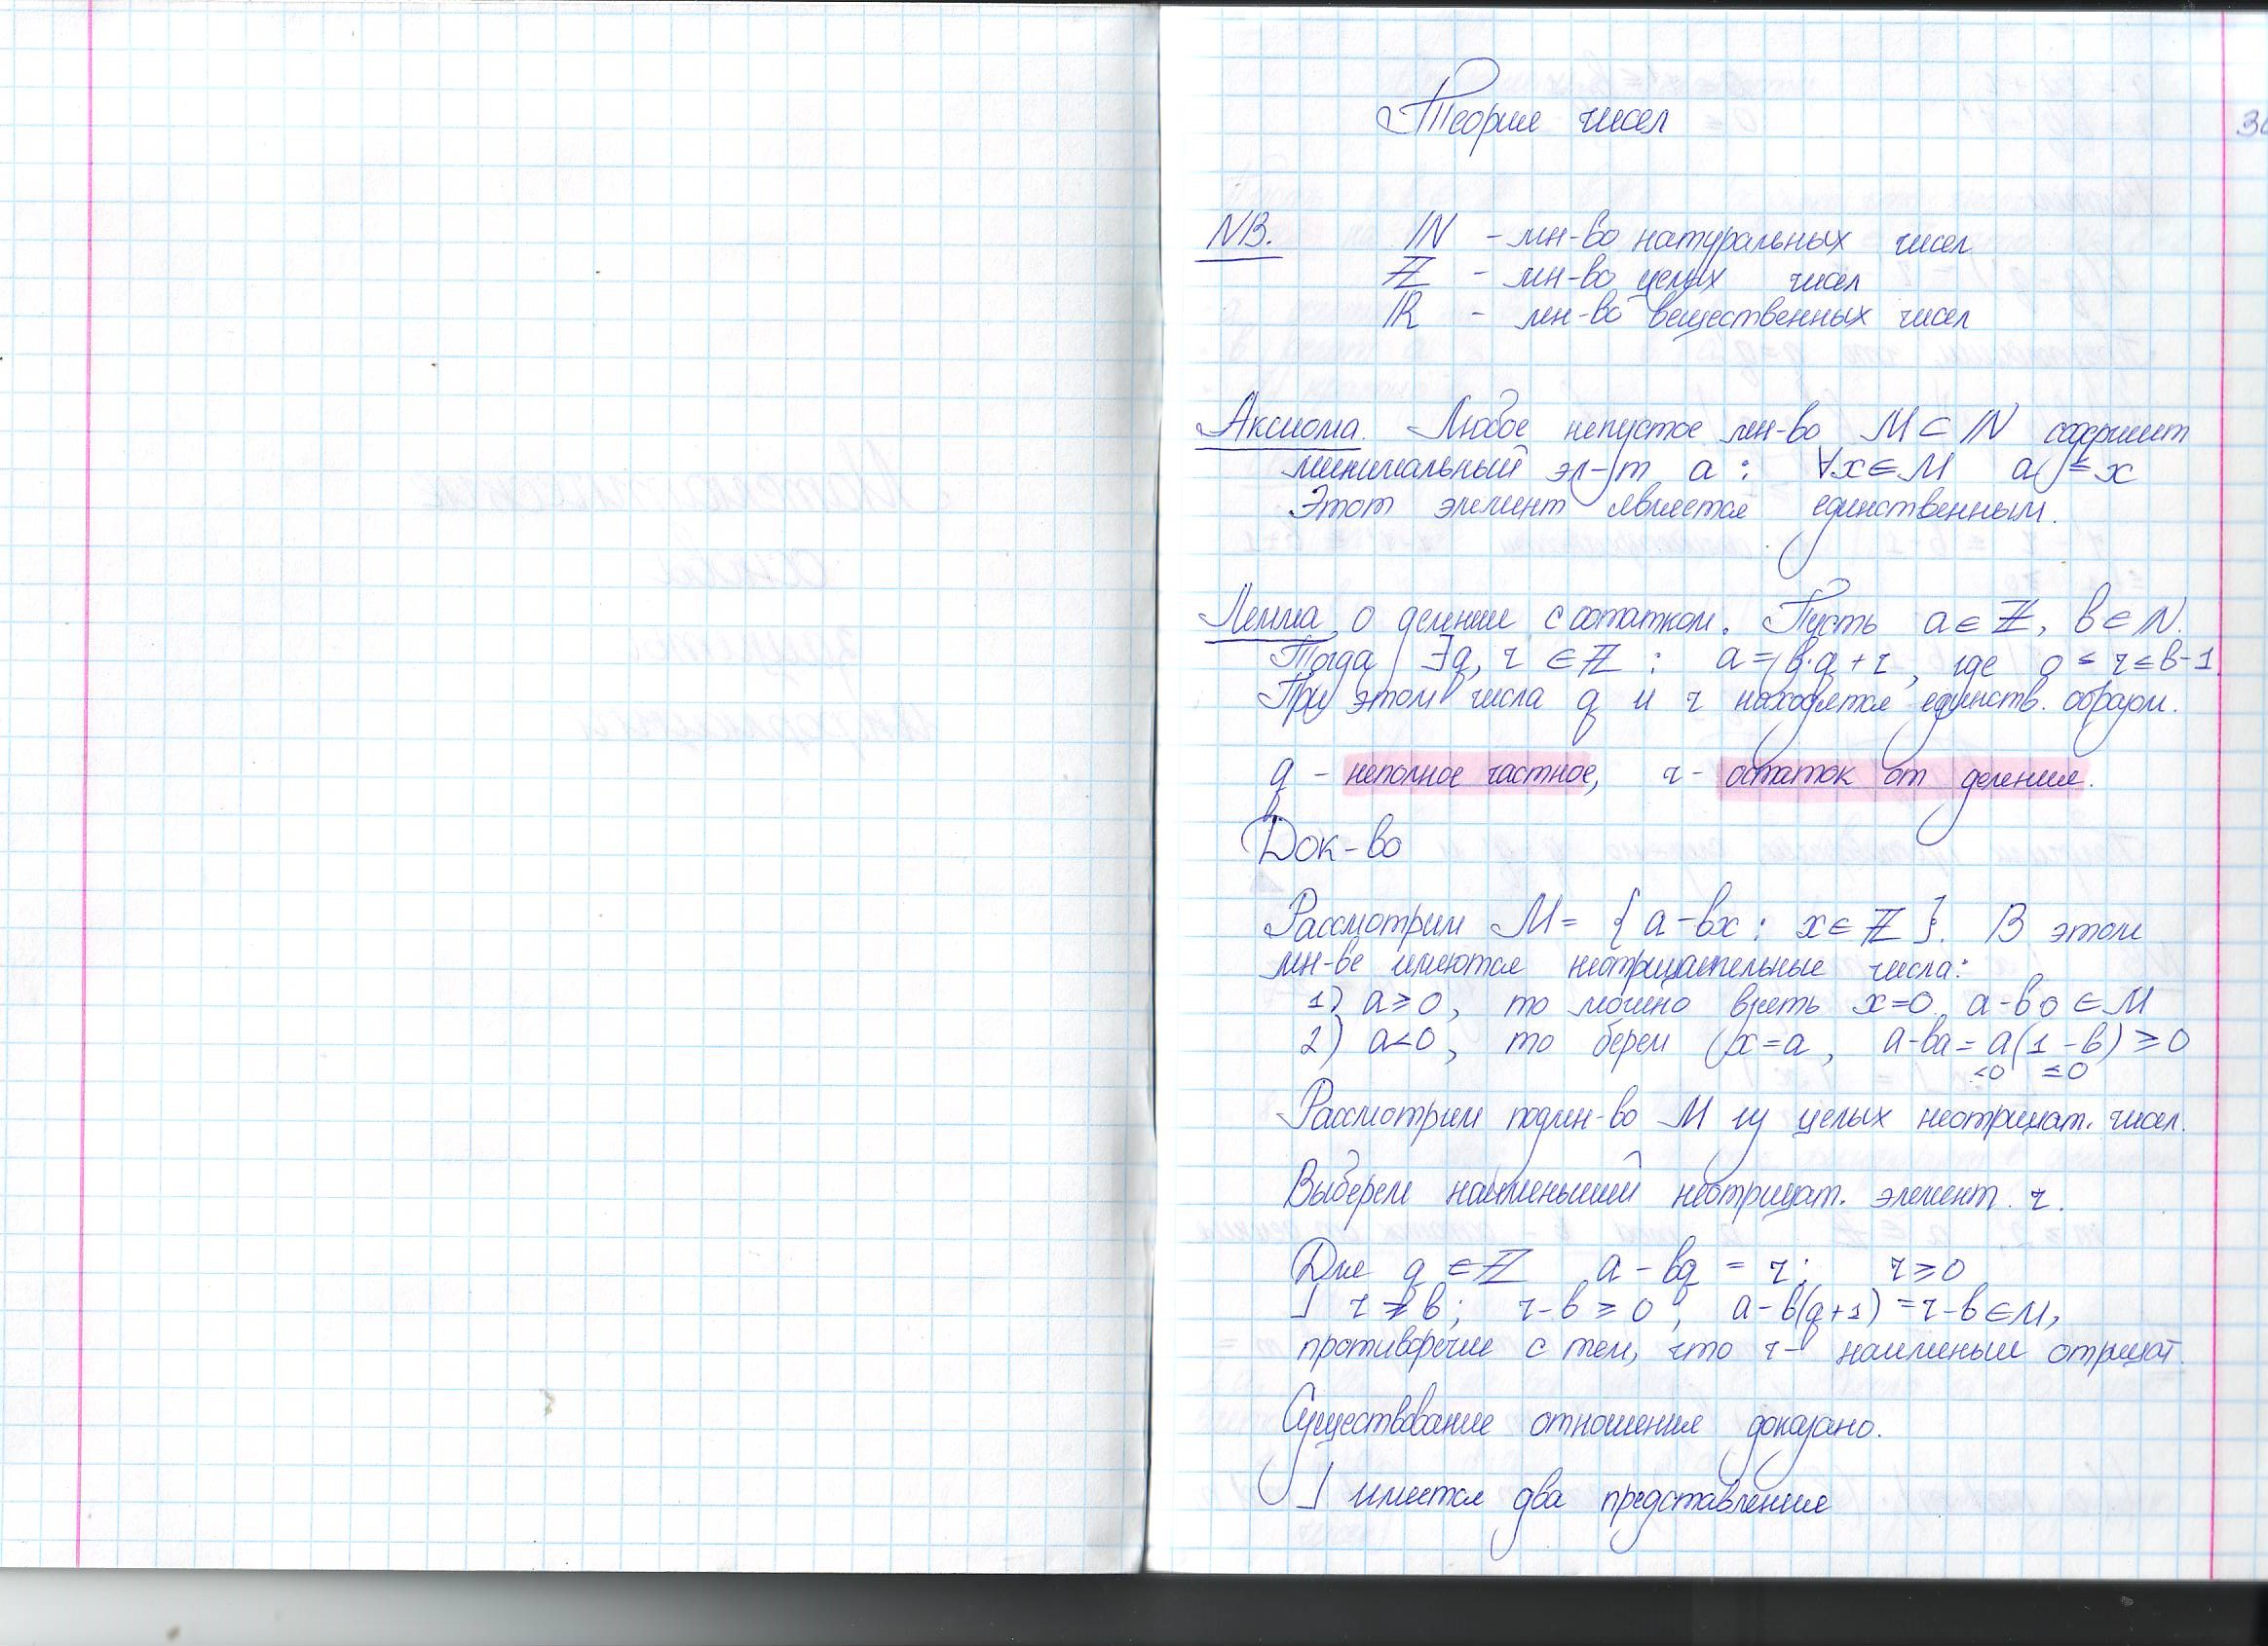 Теория чисел
30
NB. ℕ - мн-во натуральных чисел
ℤ - мн-во целых чисел
ℝ - мн-во вещественных чисел
Аксиома. Любое непустое мн-во M ⊂ ℕ содержит
минимальный эл-т a : ∀x∈M a ≤ x
Этот элемент является единственным.
Лемма о делении с остатком. Пусть a ∈ ℤ, b ∈ ℕ.
Тогда ∃q, r ∈ ℤ : a = b·q + r, где 0 ≤ r ≤ b-1.
При этом числа q и r находятся единств. образом.
q - неполное частное, r - остаток от деления.
Док-во
Рассмотрим M = { a - bx : x ∈ ℤ }. В этом
мн-ве имеются неотрицательные числа:
1) a ≥ 0, то можно взять x=0, a-b·0 ∈ M
2) a<0, то берем x=a, a-ba = a(1-b) ≥ 0
<0 ≤0
Рассмотрим подмн-во M из целых неотрицат. чисел.
Выберем наименьший неотрицат. элемент r.
Для q ∈ ℤ a - bq = r; r ≥ 0
⅃ r ≥ b; r-b ≥ 0, a-b(q+1) = r-b ∈ M,
противоречие с тем, что r - наименьш отрицат.
Существование отношения доказано.
⅃ имеется два представления